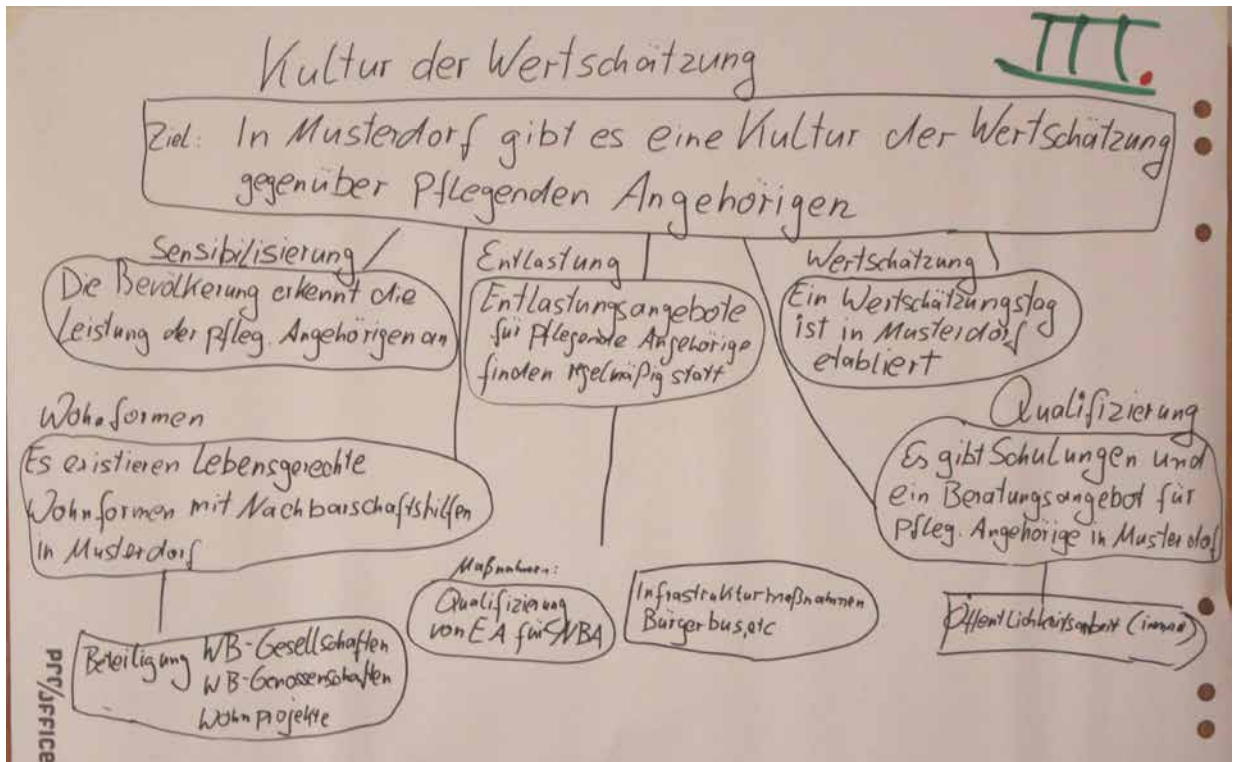 III.
Kultur der Wertschätzung
Ziel: In Musterdorf gibt es eine Kultur der Wertschätzung
gegenüber Pflegenden Angehörigen
Sensibilisierung
Die Bevölkerung erkennt die
Leistung der pfleg. Angehörigen an
Entlastung
Entlastungsangebote
für Pflegende Angehörige
finden regelmäßig statt
Wertschätzung
Ein Wertschätzungstag
ist in Musterdorf
etabliert
Wohnformen
Es existieren Lebensgerechte
Wohnformen mit Nachbarschaftshilfen
in Musterdorf
Qualifizierung
Es gibt Schulungen und
ein Beratungsangebot für
Pfleg. Angehörige in Musterdorf
Beteiligung WB-Gesellschaften
WB-Genossenschaften
Wohnprojekte
Maßnahmen:
Qualifizierung
von EA für NBA
Infrastrukturmaßnahmen
Bürgerbus, etc
Öffentlichkeitsarbeit (immer)